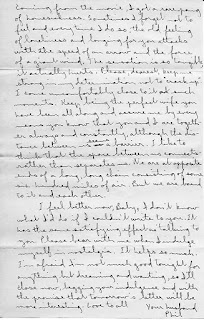 Coming from the movie, I got a severe pang
of homesickness. Sometimes I forget not to
feel and every time I do so the old feeling
of loneliness and longing for you attacks
with the speed of an arrow and the force
of a giant wind. The sensation is so tangible
it actually hurts. Please, dearest, keep me
strong in my determination not to crack up
I come uncomfortably close to it at such
moments. Keep being the perfect wife you
have been all along and assure me by every
means you know that you and I are togeth-
er always and constantly although the dis-
tance between seems a barrier. I like to
think that the space between us connects
rather than separates us. We are at opposite
ends of a long, long chain consisting of some
six hundred miles of air. But we are bound
to it and each other.
I feel better now, Baby. I don't know
what I'd do if I couldn't write to you. It
has the same satisfying effect as talking to
you. Please bear with me when I indulge
myself in nostalgia. It helps so much.
I'm afraid I'm not much good tonight for
anything but dreaming and waiting, so I'll
close now, begging your indulgence and with
the promise that tomorrow's letter will be
more interesting. Love to all
Your husband,
Phil